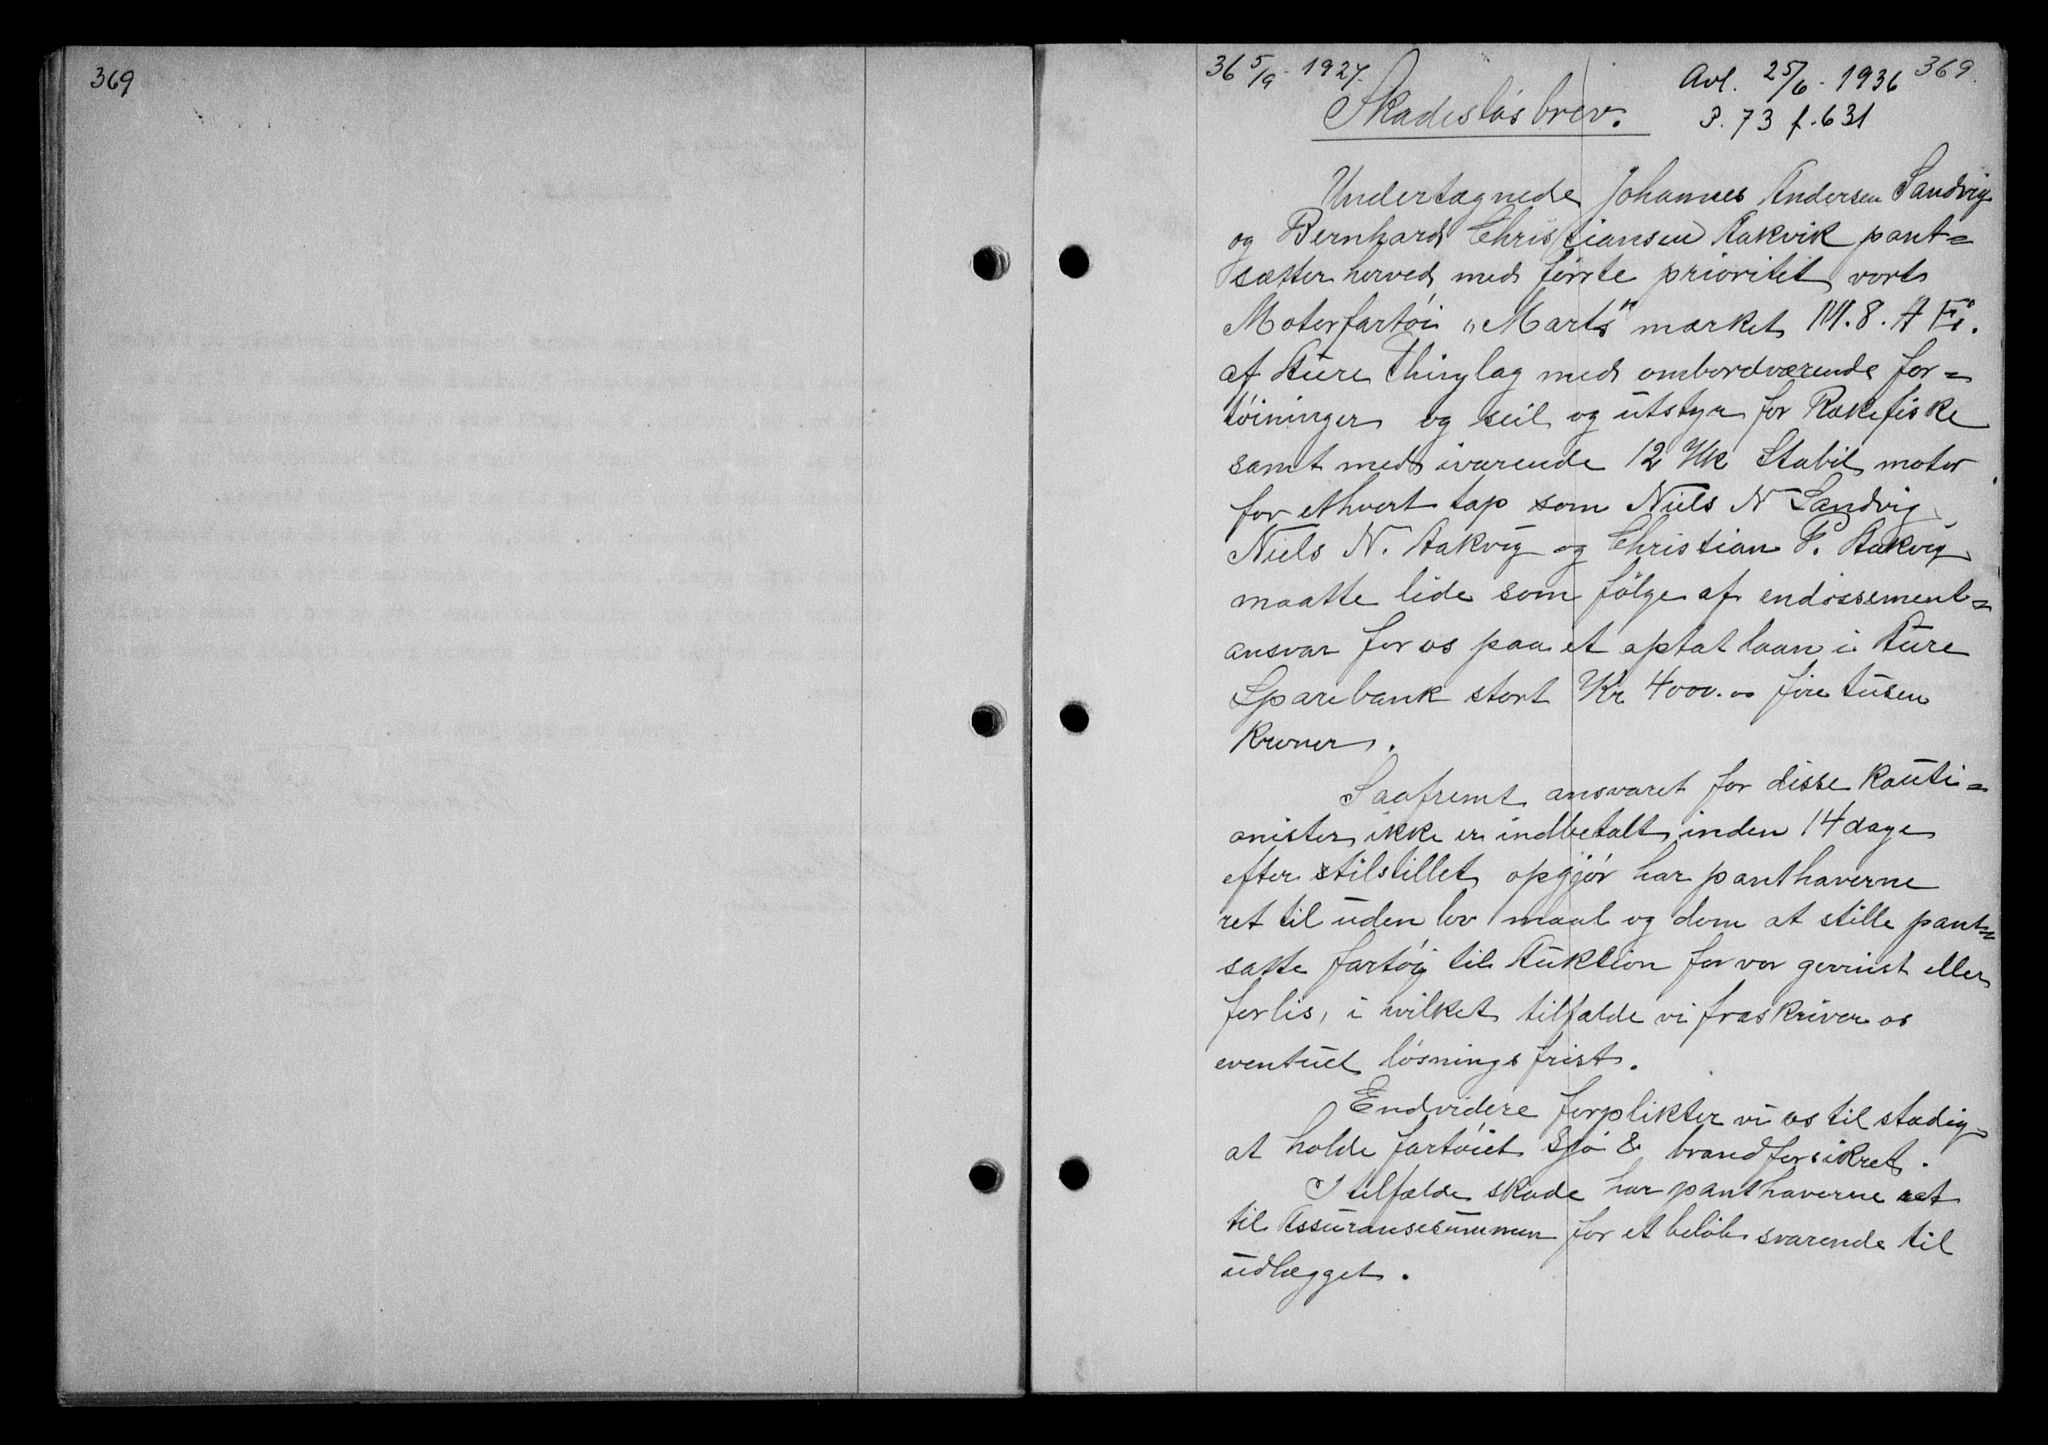 369
36 5/9 - 1927.
Avl. 25/6 - 1936 369.
P. 73 f. 631
Skadesløsbrev.
Undertagnede Johannes Andersen Sandvig
og Bernhard Christiansen Aakvik pant=
sætter herved med første prioritet vort
Motorfartøi „Marts" mærket M. 8. A
af Aure Thinglag med ombordværende for=
tøininger og seil og utstyr for Rækefiske
samt med ivarende 12 Hk Stabil motor
for ethvert tap som Niels N Sandvig
Niels N. Aakvig og Christian P. Aakvig
maatte lide som følge af endossement=
ansvar for os paa et optat laan i Aure
Sparebank stort Kr 4000.00 fire tusen
Kroner.
Saafremt ansvaret for disse Kauti=
onister ikke er indbetalt inden 14 dage
efter tilstillet opgjør har panthaverne
ret til uden lov maal og dom at stille pant=
satte fartøy til Auktion for vor gevinst eller
forlis, i hvilket tilfælde vi fraskriver os
eventuel løsningsfrist.
Endvidere forplikter vi os til stadig
at holde fartøiet Sjø & brandforsikret.
I tilfælde skade har panthaverne ret
til Assuransesummen for et beløb svarende til
udlægget.